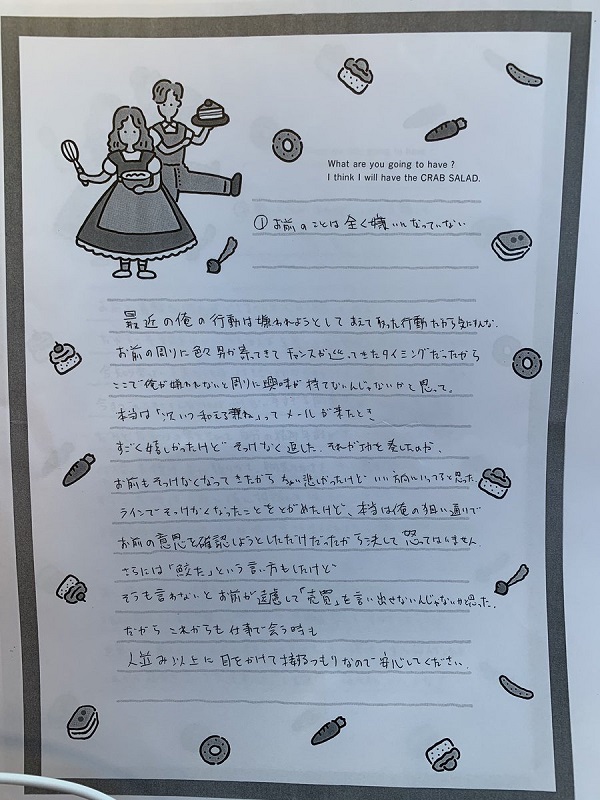 What are you going to have ?
I think I will have the CRAB SALAD.
① お前のことは全く嫌いになっていない
最近の俺の行動は嫌われようとしてあえて取った行動だから気にすんな。
お前の周りに色々男が寄ってきてチャンスが巡ってきたタイミングだったから
ここで俺が嫌われないと周りに興味が持てないんじゃないかと思って。
本当は「次いつ和える兼ね」ってメールが来たとき
すごく嬉しかったけどそっけなく返した。それが功を奏したのか、
お前もそっけなくなってきたからちょい悲しかったけどいい方向にいってると思った
ラインでそっけなくなったことをとがめたけど、本当は俺の狙い通りで
お前の意思を確認しようとしただけだったから決して怒ってはいません。
さらには「鮫た」という言い方もしたけど
そうも言わないとお前が遠慮して「売買」を言い出せないんじゃないかと思った。
だから これからも仕事で会う時も
人並み以上に目をかけて接するつもりなので安心してください。